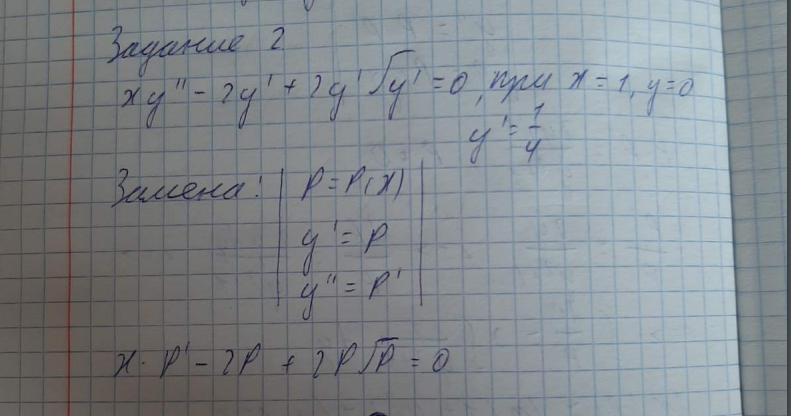 Задание 2
xy'' - 2y' + 2y'√y' = 0, при x = 1, y = 0
y' = 1/4
Замена: | P = P(x) |
y' = P
y'' = P'
x · P' - 2P + 2P√P = 0